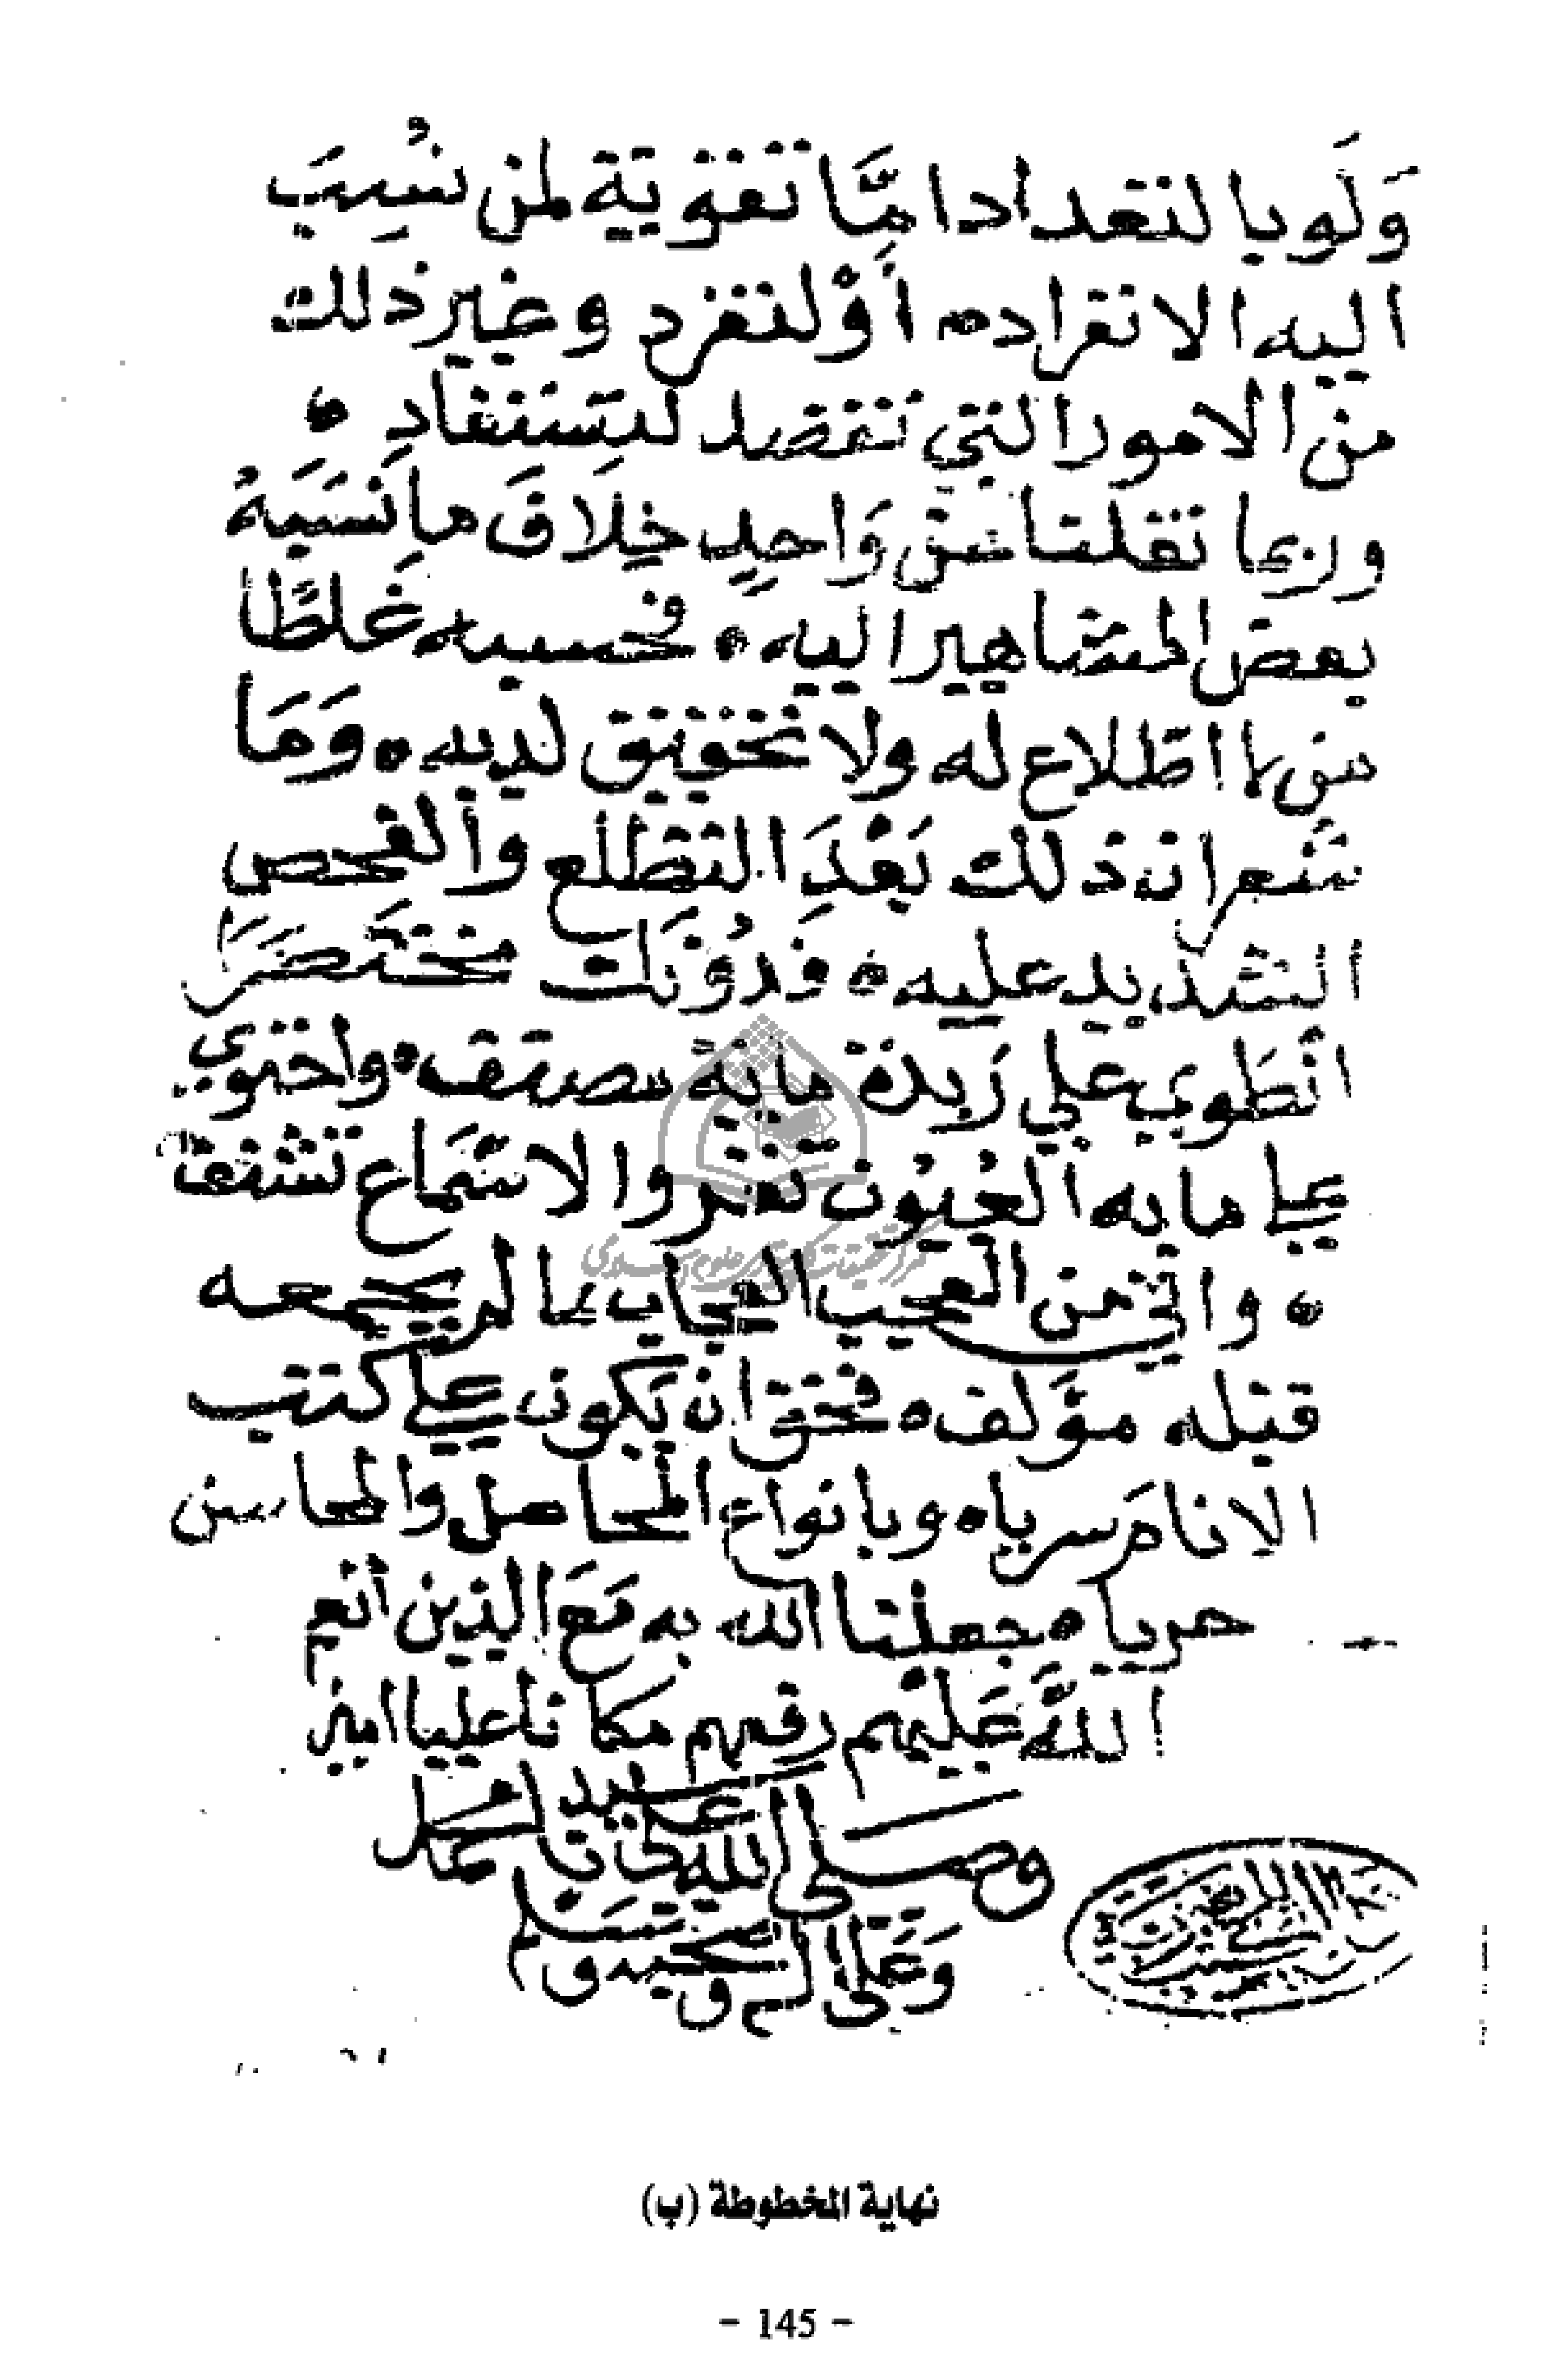 وَلَو بالتعداد امَّا تقوية لمن نُسِبَ
اليه الانفراد ه أَوْ لتفرد وغير ذلك
من الامور التي تقصد لتستفاد ه
وربما نقلنا عن وَاحِدٍ خِلَاقَ ما نَسَبَهُ
بعض المشاهير اليه ه فحسبه غلطًا
من لا اطلاع له ولا تحقيق لديه ه وَمَا
شعر انه ذلك بَعْدَ التطلع والفحص
الشديد عليه ه فدُوْنَك مختصَرَا
انطَوي علي زبدة ماية مصنف ه واحتوي
علي ما به العُيُون تقر والاسْمَاع تشنف
ه واني من العجب العجاب بما لم يجمعه
قبله مؤَلف ه فحق ان يكون علي كتب
الانام سريا ه وبانواع المحاصل والمحاسن
حريا ه جعلنا الله به مَعَ الذين أنعم
اللَّه عَلَيْهم رفعهم مكانا عليا امين
وصلى الله على سيدنا محمد
وَعَلَى اله وصحبه وسلم
نهاية المخطوطة (ب)
- 145 -